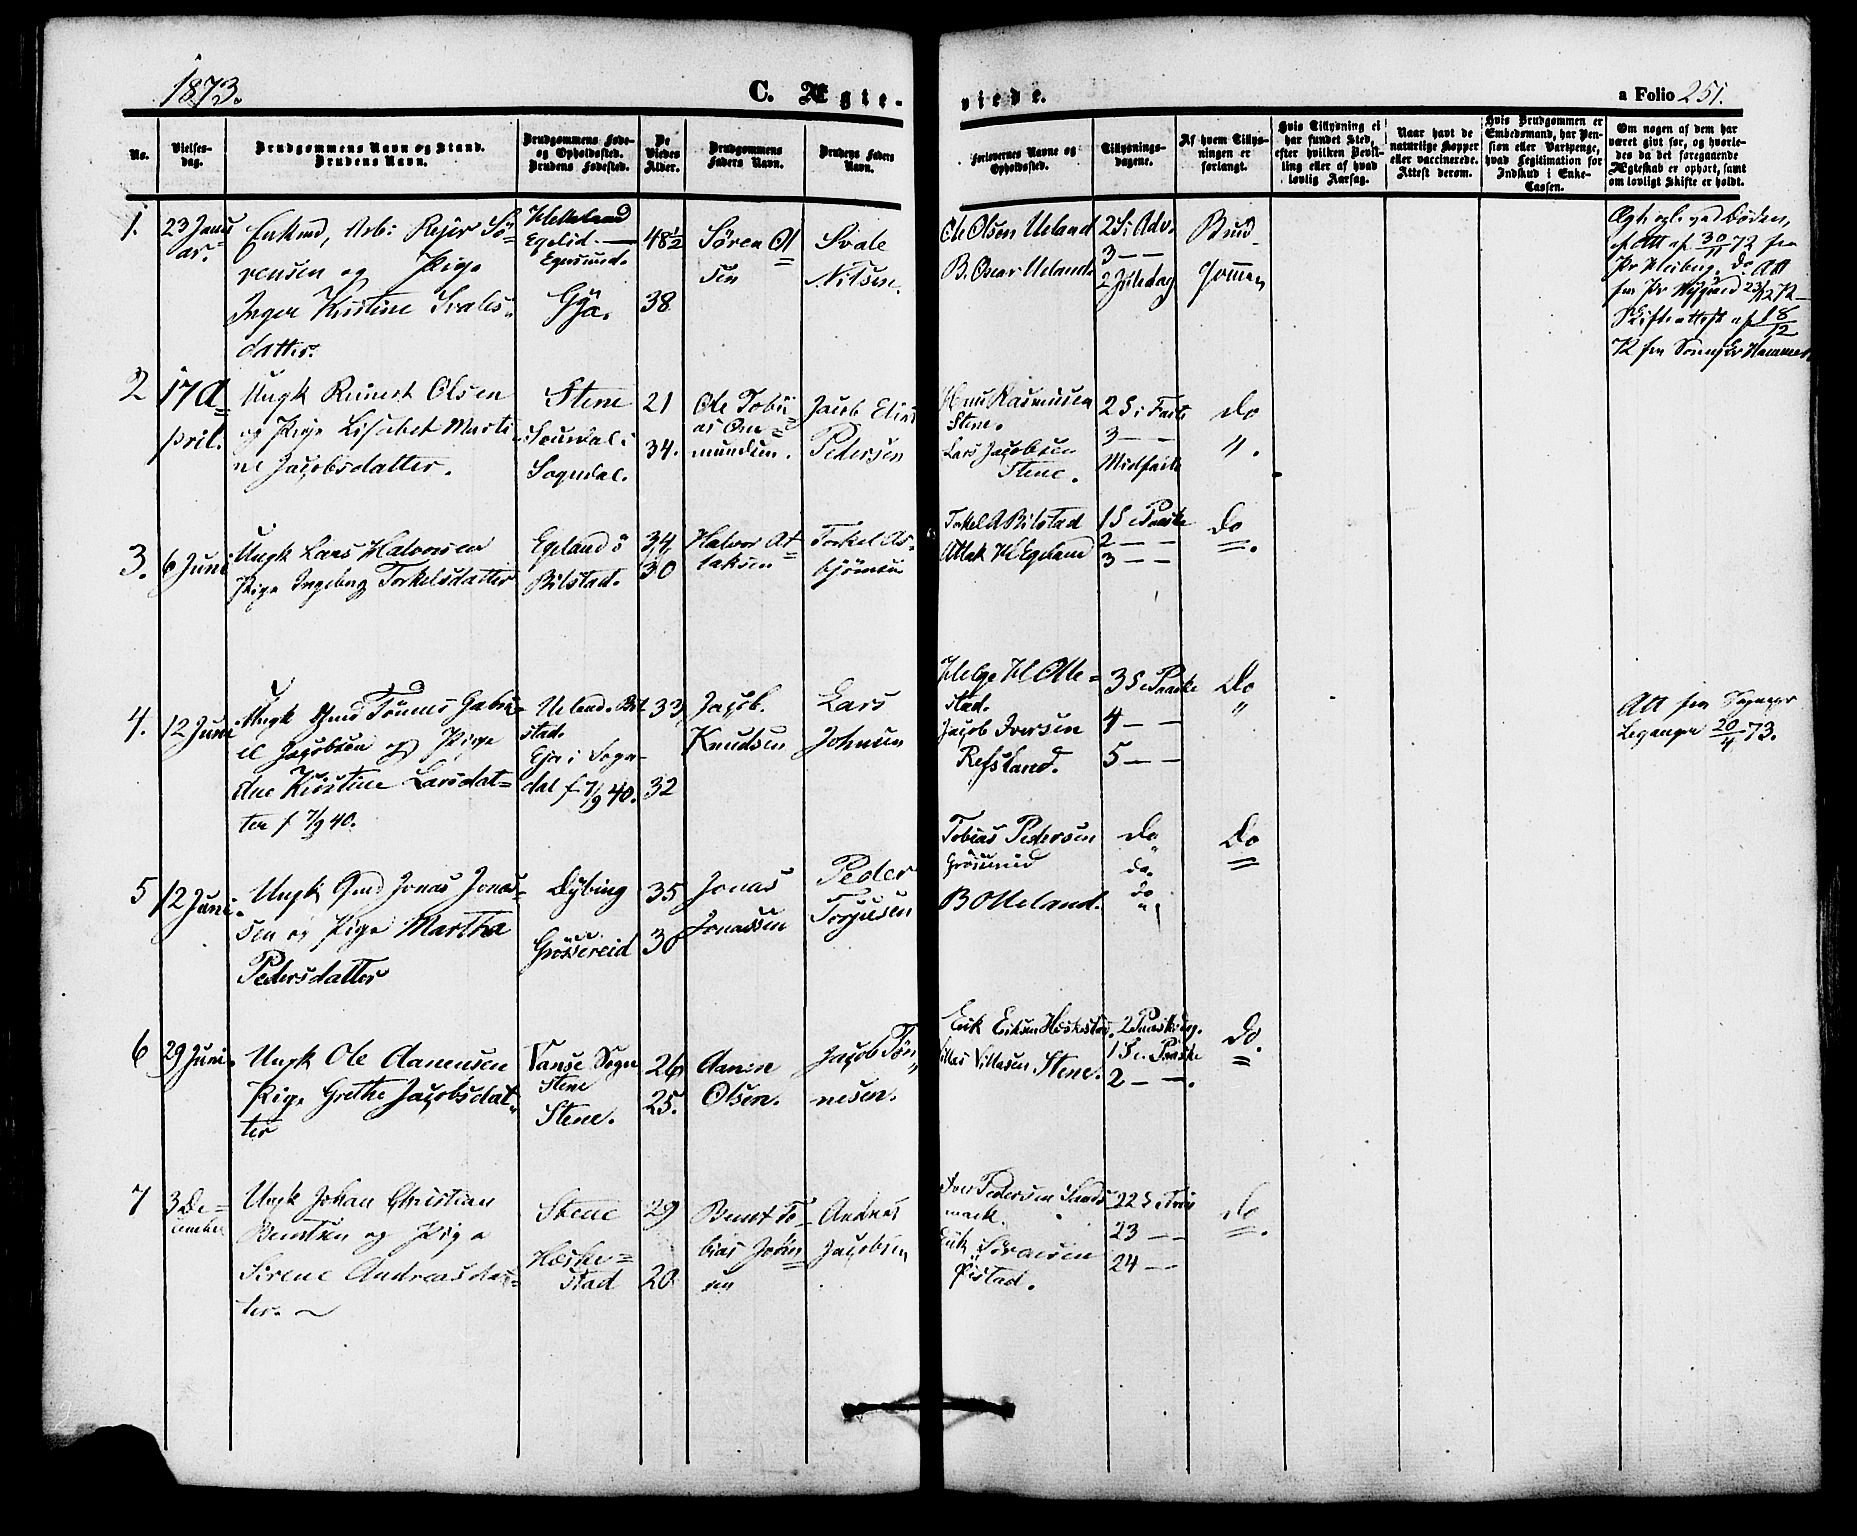 1873.
C. Ægte-
viede.
a Folio 251.
No.
Vielses-
dag.
Brudgommens Navn og Stand.
Brudens Navn.
Brudgommens Føde-
og Opholdssted.
Brudens Fødested.
De
Viedes
Alder.
Brudgommens
Faders Navn.
Brudens Faders
Navn.
Forlovernes Navne og
Opholdssted.
Tillysnings-
dagene.
Af hvem Tillys-
ningen er
forlangt.
Hvis Tillysning ei
har fundet Sted,
efter hvilken Bevil-
ling eller af hvad
lovlig Aarsag.
Naar havt de
naturlige Kopper
eller vaccinerede.
Attest derom.
Hvis Brudgommen er
Embedsmand, har Pen-
sion eller Vartpenge,
hvad Legitimation for
Indskud i Enke-
Cassen.
Om nogen af dem har
været gift før, og hvorle-
des da det foregaaende
Ægteskab er ophørt, samt
om lovligt Skifte er holdt.
1.
23 Janu
ar.
Enkmd, Arb: Rejer Sö-
rensen og Pige
Inger Kristine Svales-
datter.
Helleland
Egelid. —
Egersund.
Gya.
48½
38
Sören Ol
sen
Svale
Nilsen.
Ole Olsen Ueland
B. Oscar Ueland.
2 S i Adv.
3 — —
2 Juledag
Brud
gommen
2
17 A=
pril.
Ungk Reinert Olsen
og Pige Lisabet Marti-
ne Jacobsdatter.
Stene
Soundal i
Sogndal.
21
34.
Ole Tobi-
as Om-
mundsen.
Jacob Elias
Pedersen
Rasmusen
Stene.
Lars Jacobsen
Stene.
2 S i Faste
3 — —
Midfaste
do
".
3.
6 Juni
Ungk Lars Halvorsen
Pige Ingeborg Torkelsdatter
Egeland
Bilstad.
34,
30
Halvor At-
laksen
Torkel As-
björnsen
Torkel A Bilstad
Atlak H Egeland
1 S e Paaske
2 — —
3 — —
Do
4.
12 Juni
Ungk Gmd Tönnes Gabri-
el Jacobsen og Pige
Ane Kirstine Larsdat-
ter f 7/9 40.
Ueland. Bil-
stad.
Eja i Sogn-
dal f 7/9 40.
33
32
Jacob
Knudsen
Lars
Johnsen
Helge H Olle-
stad.
Jacob Iversen
Refsland.
3 S e Paaske
4 — —
5 — —
Do
"
Att fra Sogpr
Leganger 20/4 73.
5
12 Juni.
Ungk Gmd Jonas Jonas-
sen og Pige Martha
Pedersdatter
Dybing
Grössereid
35
30
Jonas
Jonassen
Peder
Torjusen
Tobias Pedersen
B O Ueland.
Do
do.
do
Do
6
29 Juni.
Ungk Ole Aanensen
Pige Grethe Jacobsdat-
ter
Vanse Sogn
Stene
Stene.
26
25.
Aanen
Olsen.
Jacob Tön-
nesen.
Erik Eriksen Heskestad.
Villas Villasen Stene.
2 Paaskedag.
1 S e. Paaske
2 — —.
Do.
7
3 De-
cember
Ungk Johan Christian
Berntsen og Pige
Sirene Andreasdat-
ter. ~
Stene
Heske-
stad
29
20
Bernt To-
bias Jörn-
sen
Andreas
Jacobsen
Iver Pedersen Sands
mark.
Erik Sörensen
22 S e Trin
23 — —
24 — —
do